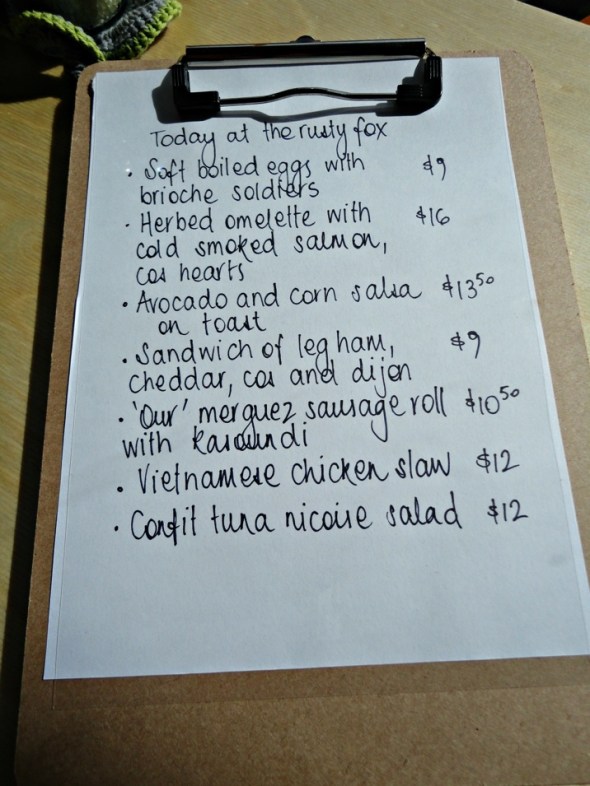 Today at the rusty fox
· Soft boiled eggs with $9
brioche soldiers
· Herbed omelette with $16
cold smoked salmon,
cos hearts
· Avocado and corn salsa $13⁵⁰
on toast
· Sandwich of leg ham, $9
cheddar, cos and dijon
· 'Our' merguez sausage roll $10⁵⁰
with kasoundi
· Vietnamese chicken slaw $12
· Confit tuna nicoise salad $12